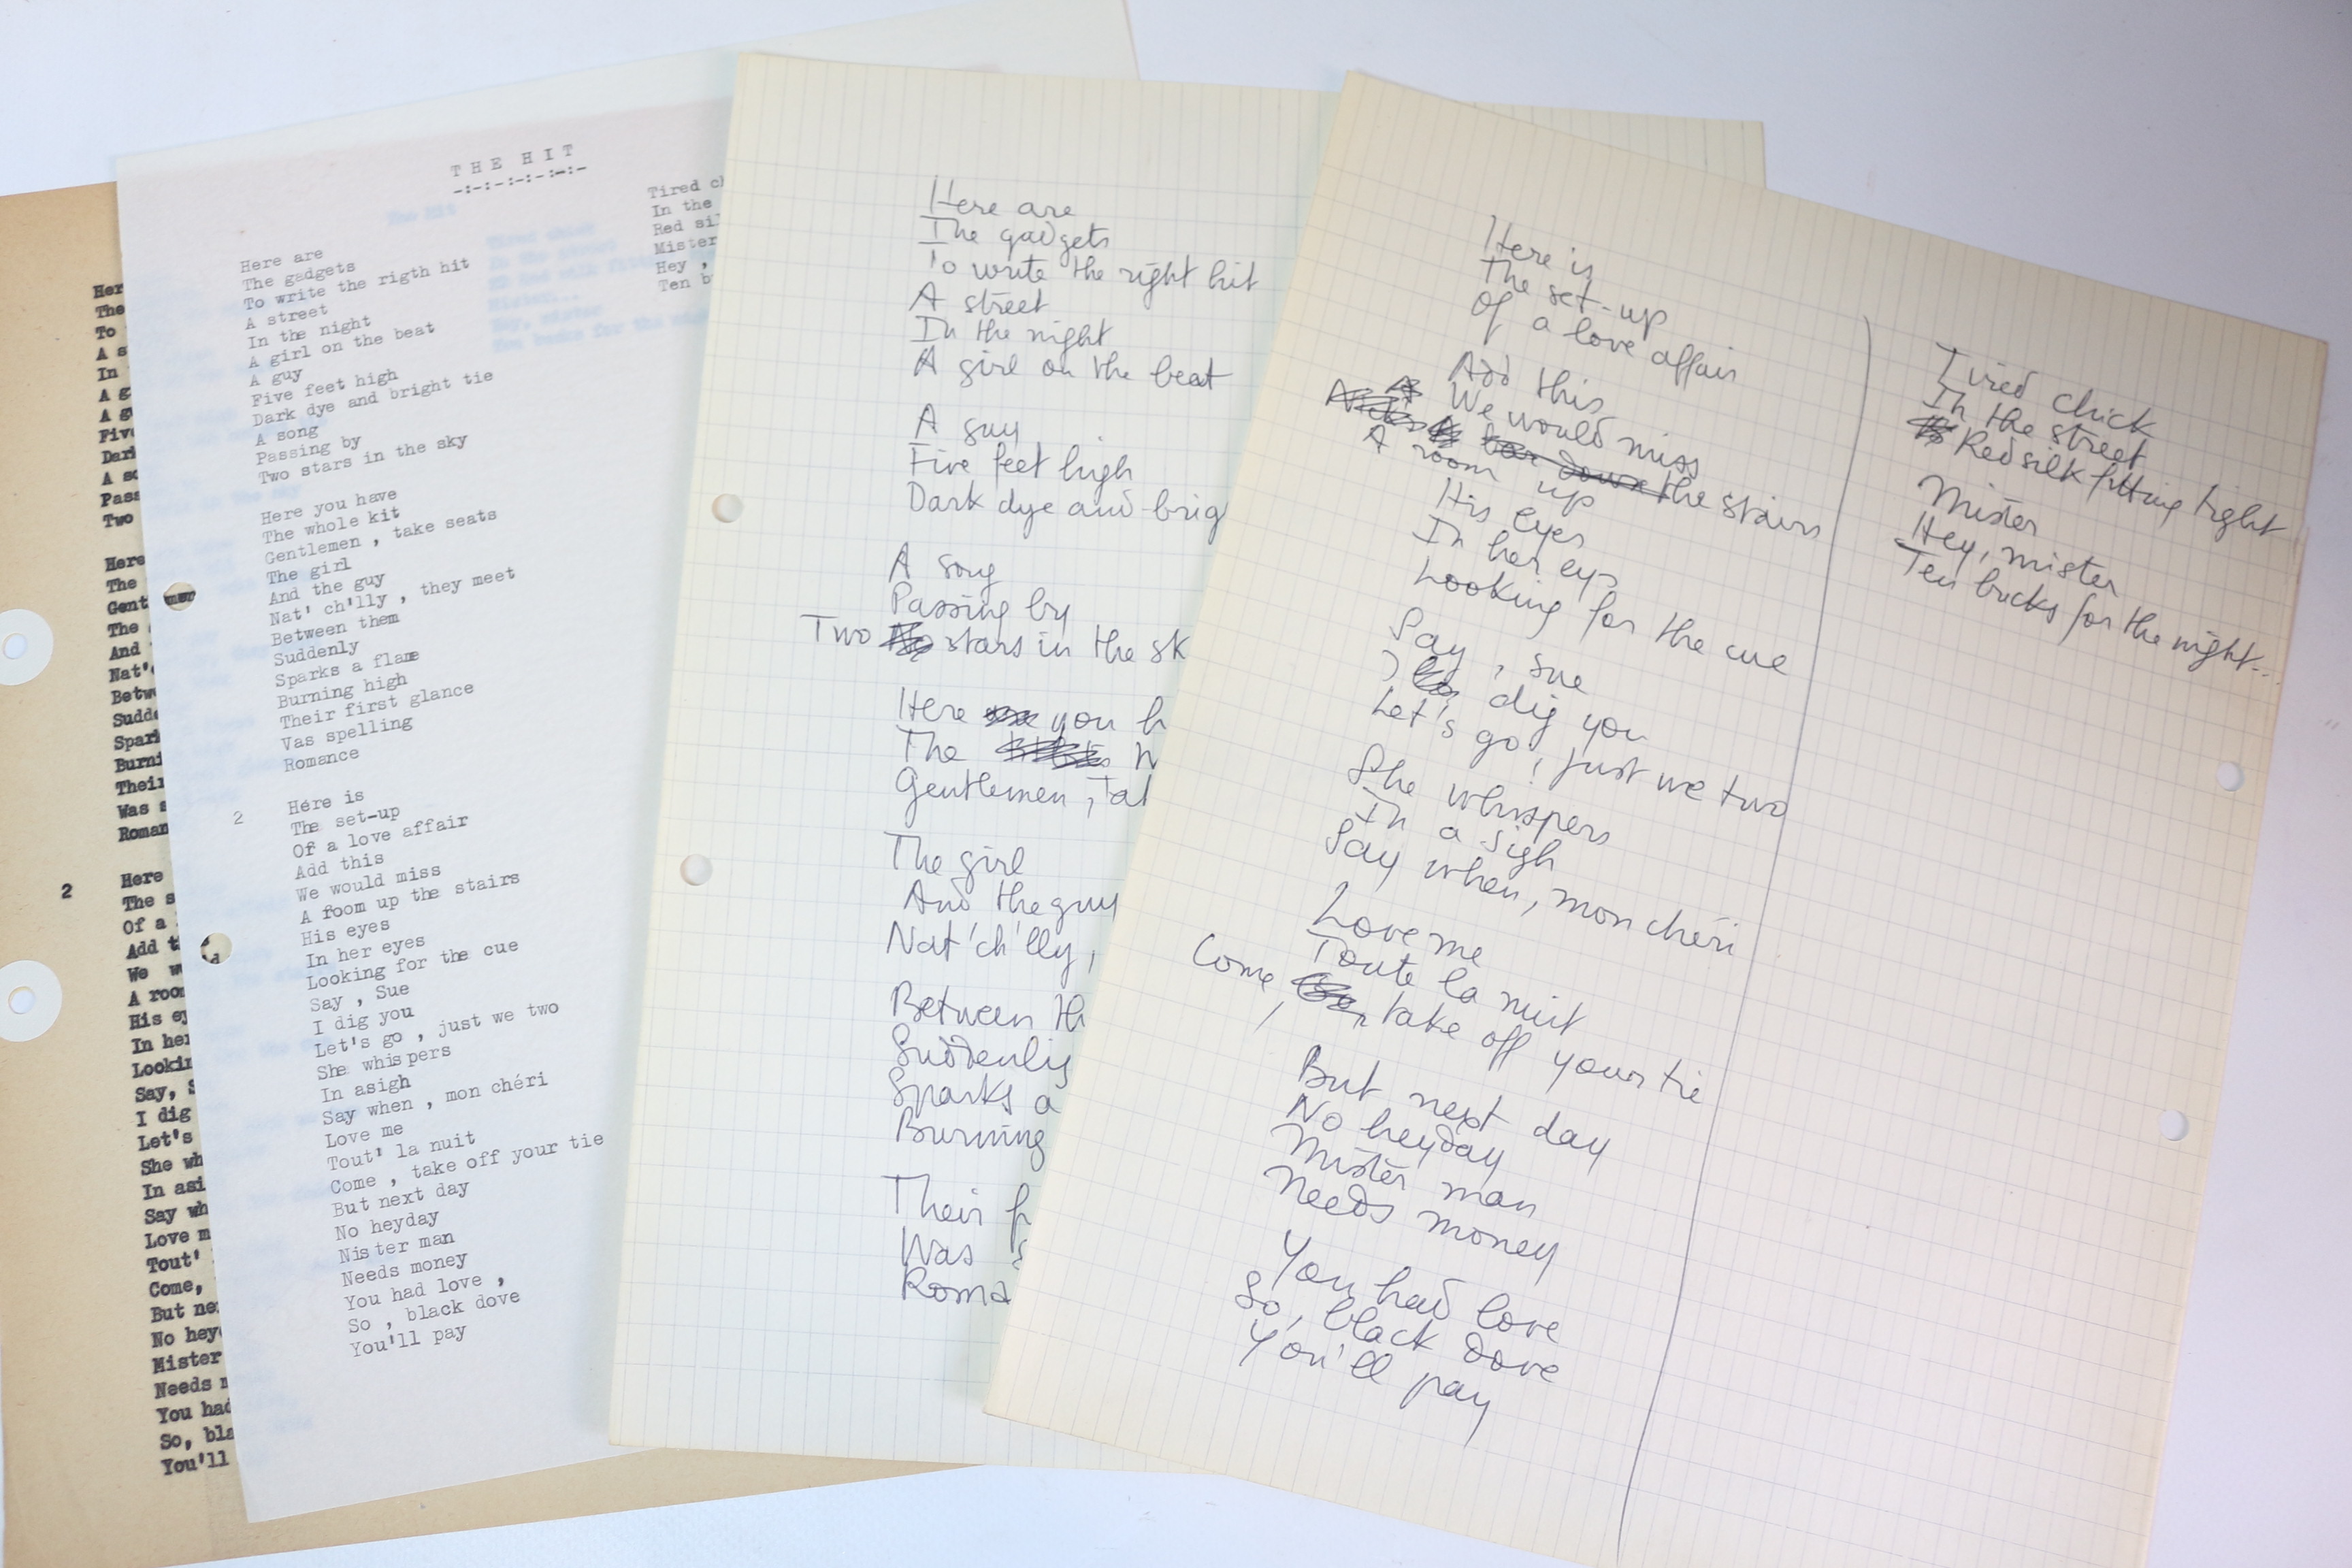 Her
The
To
A s
In
A g
A gu
Five
Dark
A so
Pass
Two
Here
The
Gent
The
And
Nat'
Betw
Sudde
Spark
Burni
Their
Was s
Roman
2
Here
The s
Of a
Add t
We w
A room
His ey
In her
Lookin
Say, S
I dig
Let's
She wh
In asi
Say wh
Love m
Tout'
Come,
But ne
No hey
Mister
Needs m
You had
So, bla
You'll
THE HIT
-:-:-:-:-:-:-
Here are
The gadgets
To write the rigth hit
A street
In the night
A girl on the beat
A guy
Five feet high
Dark dye and bright tie
A song
Passing by
Two stars in the sky
Here you have
The whole kit
Gentlemen , take seats
The girl
And the guy
Nat' ch'lly , they meet
Between them
Suddenly
Sparks a flame
Burning high
Their first glance
Vas spelling
Romance
2
Here is
The set-up
Of a love affair
Add this
We would miss
A room up the stairs
His eyes
In her eyes
Looking for the cue
Say , Sue
I dig you
Let's go , just we two
She whispers
In asigh
Say when , mon chéri
Love me
Tout' la nuit
Come , take off your tie
But next day
No heyday
Nister man
Needs money
You had love ,
So , black dove
You'll pay
Tired ch
In the
Red sil
Mister
Hey ,
Ten b
Here are
The gadgets
To write the right hit
A street
In the night
A girl on the beat
A guy
Five feet high
Dark dye and brig
A song
Passing by
Two stars in the sk
Here you h
The w
Gentlemen, ta
The girl
And the guy
Nat'ch'lly,
Between th
Suddenly
Sparks a
Burning
Their f
Was s
Roma
Here is
The set-up
Of a love affair
Add this
We would miss
A room up the stairs
His eyes
In her eyes
Looking for the cue
Say, Sue
I dig you
Let's go, just we two
She whispers
In a sigh
Say when, mon chéri
Love me
Toute la nuit
Come, take off your tie
But next day
No heyday
Mister man
Needs money
You had love
So, black dove
You'll pay
Tired chick
In the street
Red silk fitting tight
Mister
Hey, mister
Ten bucks for the night...